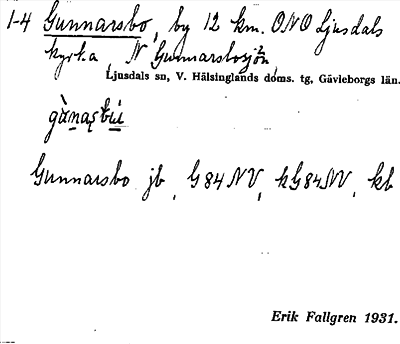 1-4 Gunnarsbo, by 12 km. ONO Ljusdals
kyrka, N Gunnarsbosjön,
Ljusdals sn, V. Hälsinglands doms. tg, Gävleborgs län.
Gunnarsbo jb, G84NV, kG84NV, kb
Erik Fallgren 1931.